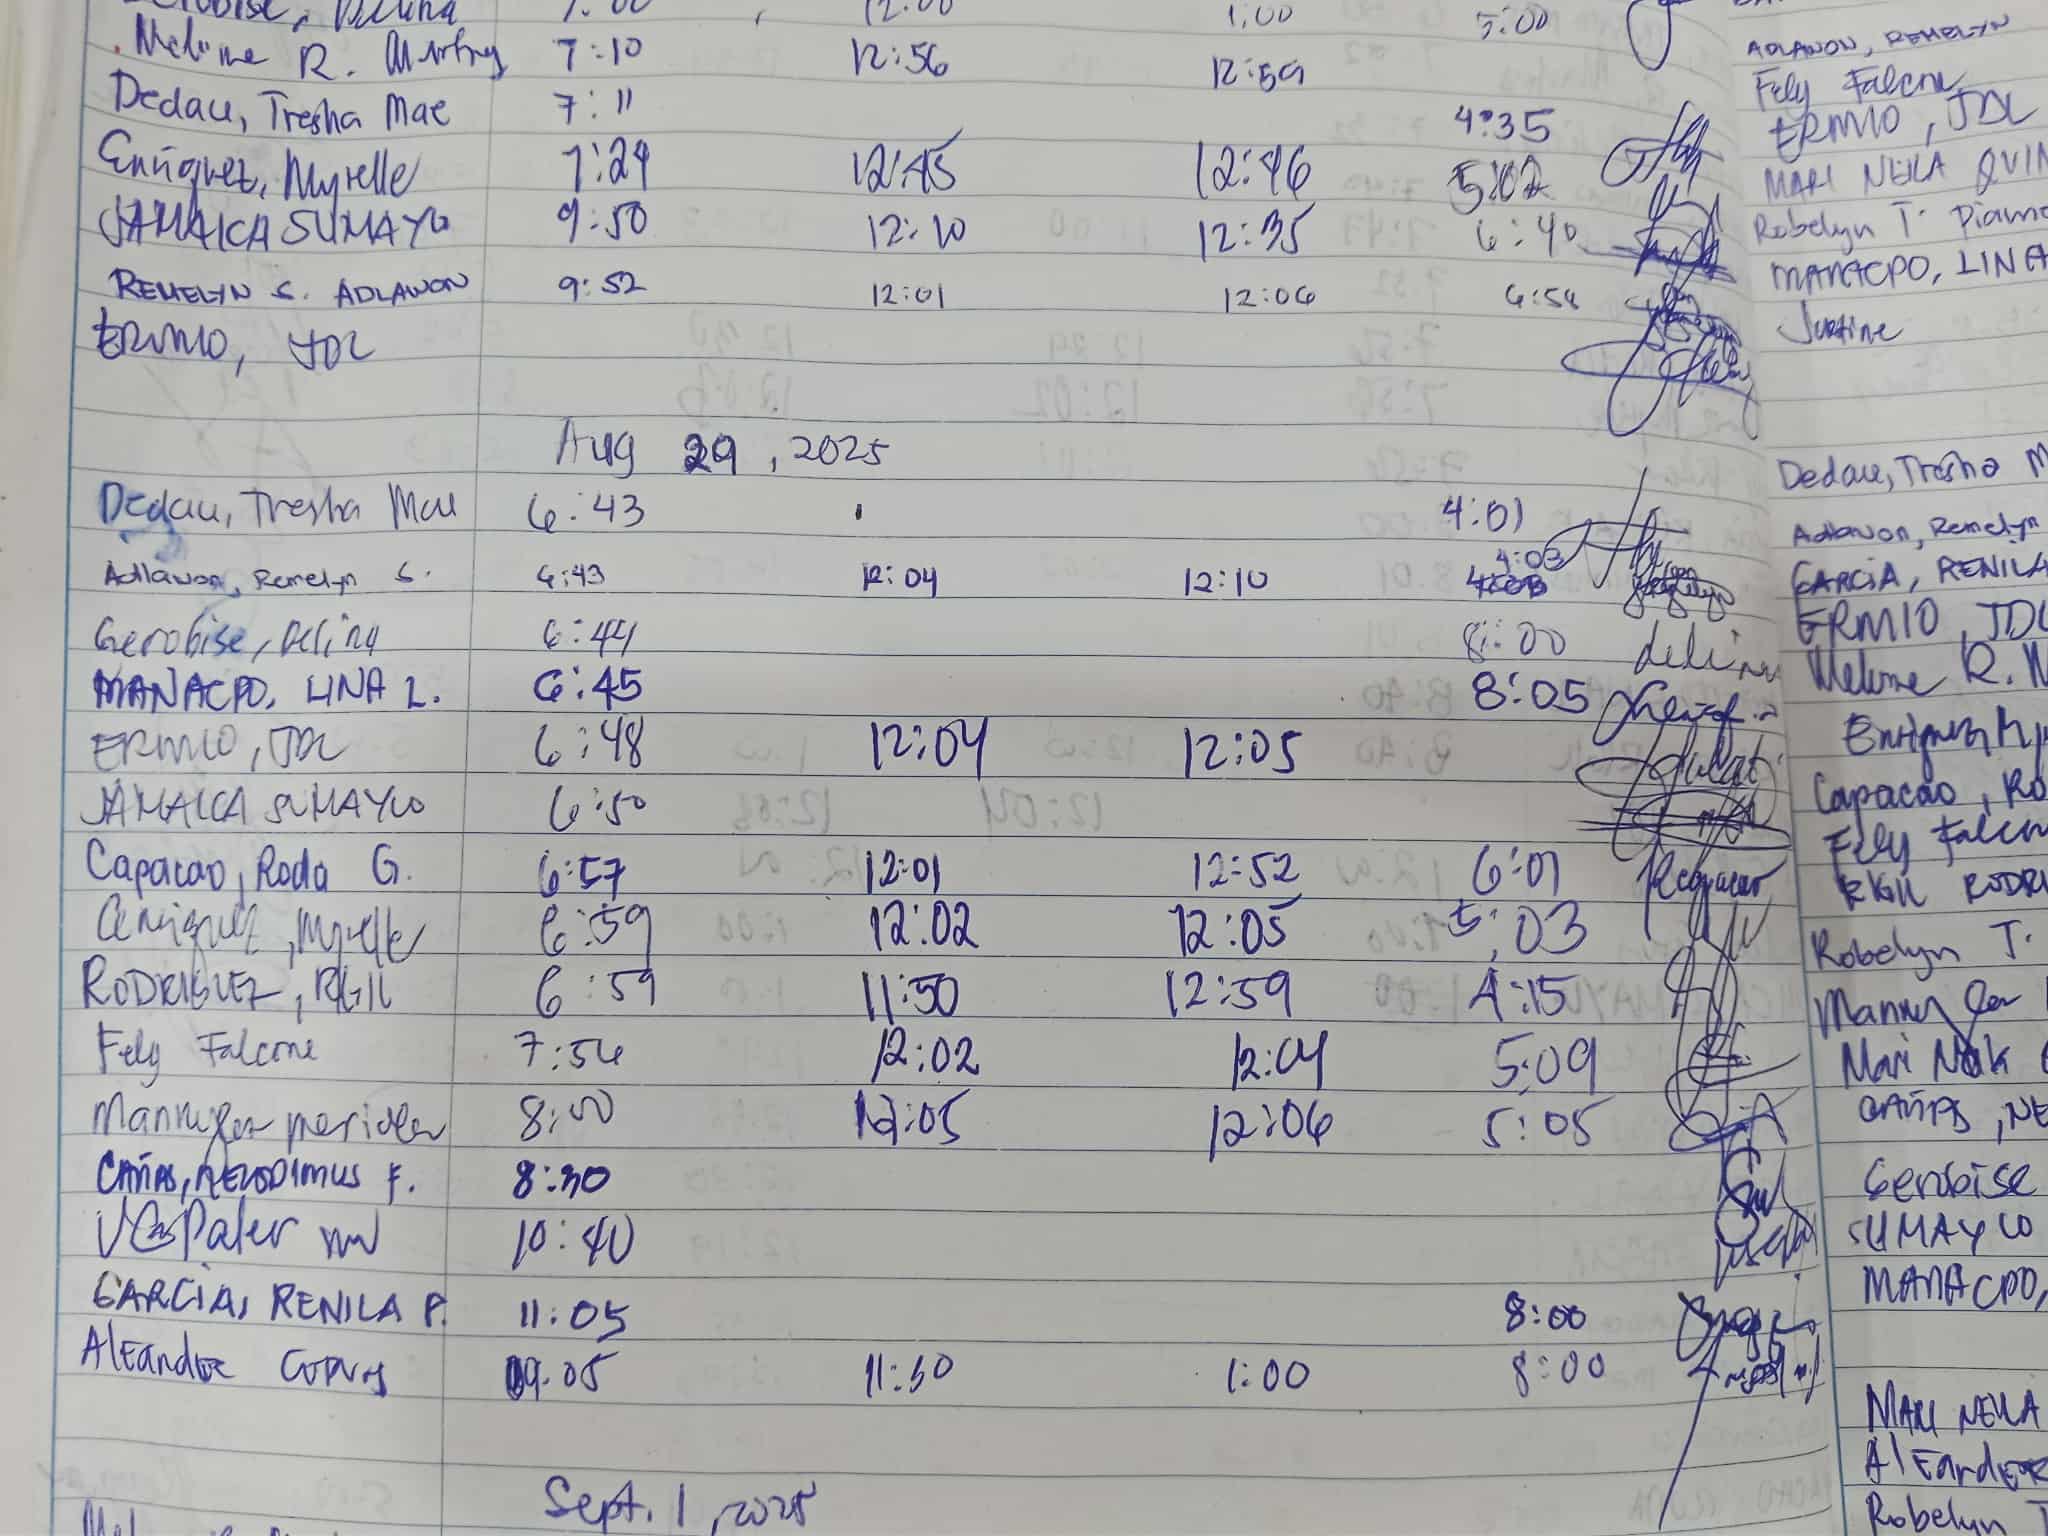 7:00 12:00 1:00 5:00
R. 7:10 12:56 12:59
Dedau, Tresha Mae 7:11 4:35
Enriquez, Myrelle 7:24 12:45 12:46 5:02
JAMAICA SUMAYLO 9:50 12:10 12:35 6:40
REMELYN S. ADLAWON 9:52 12:01 12:06
ERMIO, JDL
Aug 29, 2025
Dedau, Tresha Mae 6:43 4:01
Adlawon, Remelyn S. 6:43 12:04 12:10 4:03
Gerobise, Delina 6:44 8:00 delina
MANACPO, LINA L. 6:45 8:05
ERMIO, JDL 6:48 12:04 12:05
JAMAICA SUMAYLO 6:50
Capacao, Roda G. 6:57 12:01 12:52 6:01
Enriquez, Myrelle 6:59 12:02 12:05 5:03
RODRIGUEZ, RGIL 6:59 11:50 12:59 4:15
Fely Falcone 7:56 12:02 12:04 5:09
8:00 12:05 12:06 5:05
CAÑAS, F. 8:30
10:40
GARCIA, RENILA P. 11:05 8:00
09:05 11:30 1:00 8:00
Sept. 1, 2025
ADLAWON, REMELYN
Fely Falcone
ERMIO, JDL
MARI NEILA QUIN
Robelyn T.
MANACPO, LINA
Justine
Dedau, Tresha M
Adlawon, Remelyn
GARCIA, RENILA
ERMIO, JDL
R. M
Capacao, Ro
Fely Falcon
RGIL RODRI
Robelyn T.
CAÑAS, NE
Gerobise
SUMAYLO
MANACPO,
MARI NEILA
Robelyn T